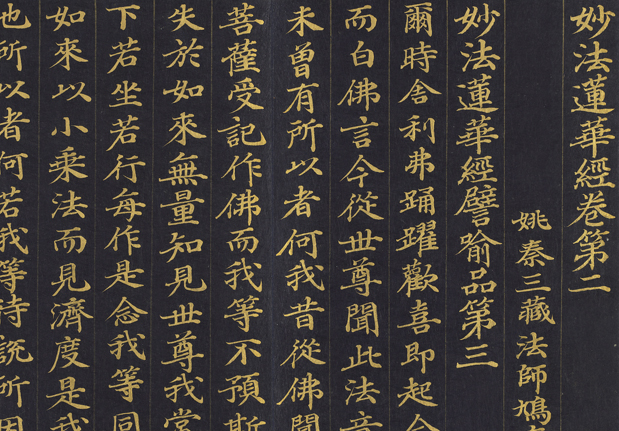 妙法蓮華經卷第二
姚秦三藏法師鳩
妙法蓮華經譬喻品第三
爾時舍利弗踊躍歡喜即起合
而白佛言今從世尊聞此法音
未曾有所以者何我昔從佛聞
菩薩受記作佛而我等不預斯
失於如來無量知見世尊我常
下若坐若行每作是念我等同
如來以小乘法而見濟度是我
也所以者何若我等待説所因